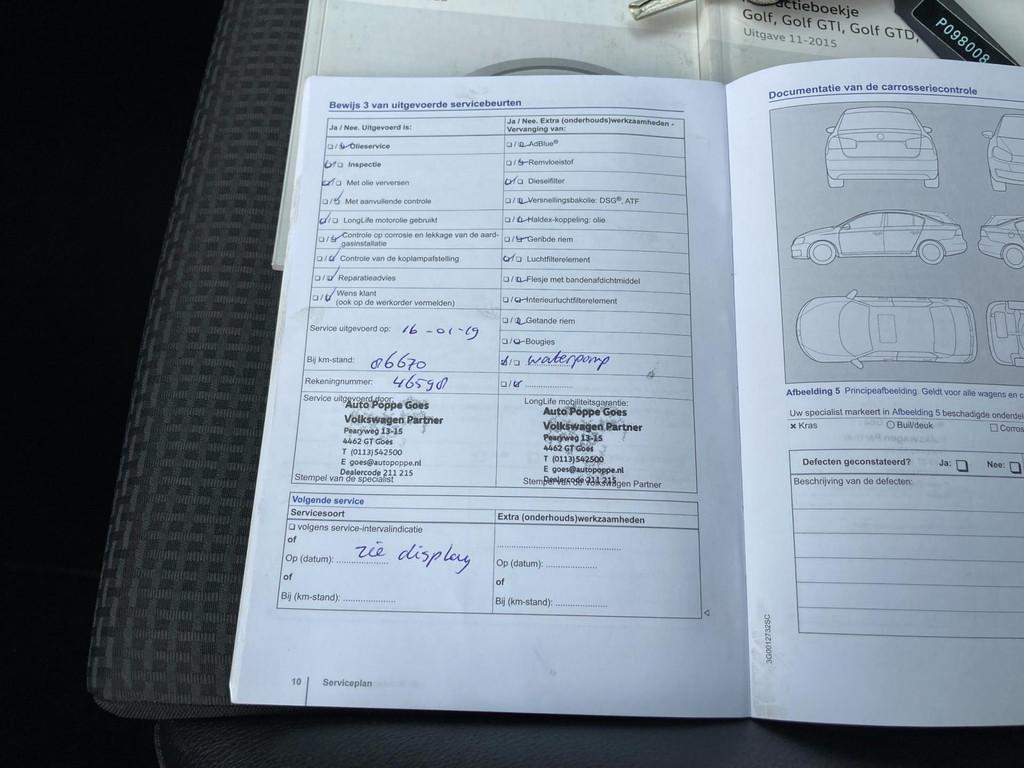 ctieboekje
Golf, Golf GTI, Golf GTD,
Uitgave 11-2015
P098008
Bewijs 3 van uitgevoerde servicebeurten
Ja / Nee. Uitgevoerd is:
Ja / Nee. Extra (onderhouds)werkzaamheden -
Vervanging van:
Olieservice
AdBlue®
Inspectie
Remvloeistof
Met olie verversen
Dieselfilter
Met aanvullende controle
Versnellingsbakolie: DSG®, ATF
LongLife motorolie gebruikt
Haldex-koppeling: olie
Controle op corrosie en lekkage van de aard-
gasinstallatie
Geribde riem
Controle van de koplampafstelling
Luchtfilterelement
Reparatieadvies
Flesje met bandenafdichtmiddel
Wens klant
(ook op de werkorder vermelden)
Interieurluchtfilterelement
Getande riem
Service uitgevoerd op: 16-01-19
Bougies
Bij km-stand: 86670
waterpomp
Rekeningnummer: 46598
Service uitgevoerd door:
LongLife mobiliteitsgarantie:
Auto Poppe Goes
Volkswagen Partner
Pearyweg 13-15
4462 GT Goes
T (0113)542500
E goes@autopoppe.nl
Dealercode 211 215
Stempel van de specialist
Auto Poppe Goes
Volkswagen Partner
Pearyweg 13-15
4462 GT Goes
T (0113)542500
E goes@autopoppe.nl
Dealercode 211 215
Stempel van de Volkswagen Partner
Volgende service
Servicesoort
Extra (onderhouds)werkzaamheden
volgens service-intervalindicatie
of
Op (datum): zie display
Op (datum):
of
of
Bij (km-stand):
Bij (km-stand):
10 Serviceplan
Documentatie van de carrosseriecontrole
Afbeelding 5 Principeafbeelding. Geldt voor alle wagens en c
Uw specialist markeert in Afbeelding 5 beschadigde onderdel
x Kras
Buil/deuk
Corros
Defecten geconstateerd? Ja: Nee:
Beschrijving van de defecten:
3G0012732SC